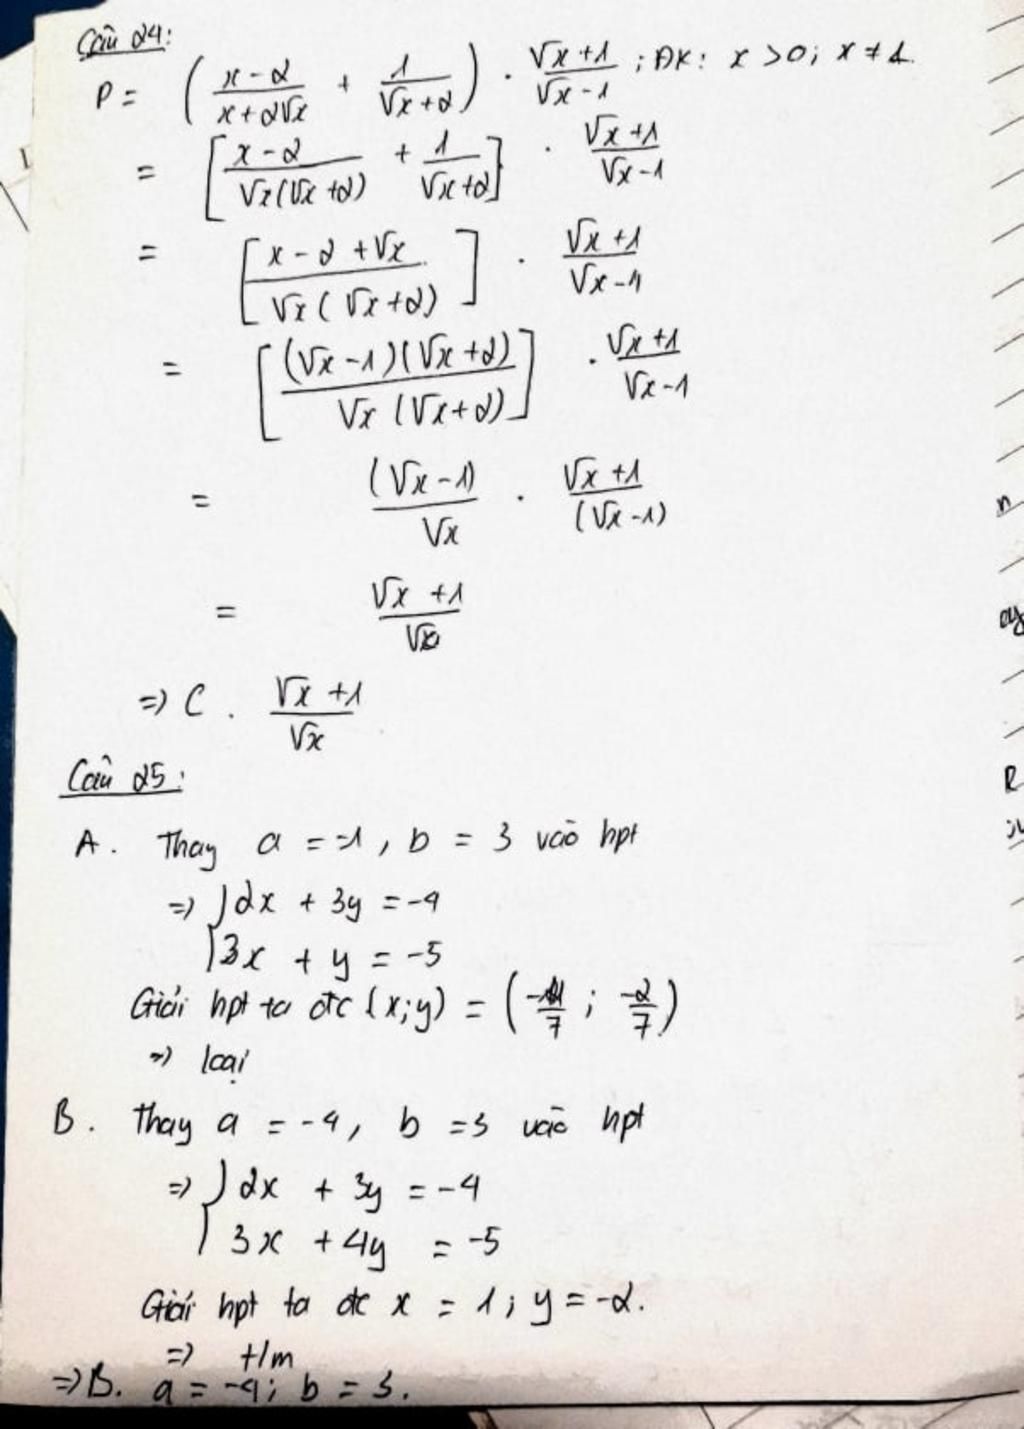 Câu 24:
P = ( (x-2)/(x+2√x) + 1/(√x+2) ) . (√x+1)/(√x-1) ; ĐK: x >0; x ≠ 1.
= [ (x-2)/(√x(√x+2)) + 1/(√x+2) ] . (√x+1)/(√x-1)
= [ (x-2+√x)/(√x(√x+2)) ] . (√x+1)/(√x-1)
= [ (√x-1)(√x+2)/(√x(√x+2)) ] . (√x+1)/(√x-1)
= (√x-1)/√x . (√x+1)/(√x-1)
= (√x+1)/√x
=> C . (√x+1)/√x
Câu 25:
A. Thay a = -1, b = 3 vào hpt
=> { 2x + 3y = -4
3x + y = -5
Giải hpt ta đc (x;y) = ( -11/7 ; -2/7 )
=> loại
B. Thay a = -4, b = 3 vào hpt
=> { 2x + 3y = -4
3x + 4y = -5
Giải hpt ta đc x = 1; y = -2.
=> t/m
=> B. a = -4; b = 3.